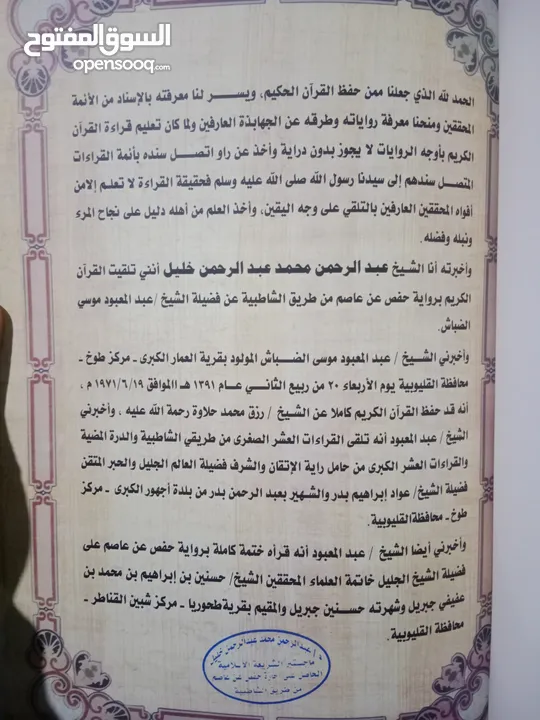 السوق المفتوح
opensooq.com
الحمد لله الذي جعلنا ممن حفظ القرآن الحكيم، ويسر لنا معرفته بالإسناد من الأئمة
المحققين ومنحنا معرفة رواياته وطرقه عن الجهابذة العارفين ولما كان تعليم قراءة القرآن
الكريم بأوجه الروايات لا يجوز بدون دراية وأخذ عن راو اتصل سنده بأئمة القراءات
المتصل سندهم إلى سيدنا رسول الله صلى الله عليه وسلم فحقيقة القراءة لا تعلم إلامن
أفواه المحققين العارفين بالتلقي على وجه اليقين، وأخذ العلم من أهله دليل على نجاح المرء
ونبله وفضله.
وأخبرته أنا الشيخ عبد الرحمن محمد عبد الرحمن خليل أنني تلقيت القرآن
الكريم برواية حفص عن عاصم من طريق الشاطبية عن فضيلة الشيخ /عبد المعبود موسي
الضباش.
وأخبرني الشيخ / عبد المعبود موسى الضباش المولود بقرية العمار الكبرى ـ مركز طوخ ـ
محافظة القليوبية يوم الأربعاء ٢٠ من ربيع الثاني عام ١٣٩١ هـ االموافق ١٩٧١/٦/١٩ م ،
أنه قد حفظ القرآن الكريم كاملا عن الشيخ / رزق محمد حلاوة رحمة الله عليه ، وأخبرني
الشيخ / عبد المعبود أنه تلقى القراءات العشر الصغرى من طريقي الشاطبية والدرة المضية
والقراءات العشر الكبرى من حامل راية الإتقان والشرف فضيلة العالم الجليل والحبر المتقن
فضيلة الشيخ/ عواد إبراهيم بدر والشهير بعبد الرحمن بدر من بلدة أجهور الكبرى ـ مركز
طوخ ـ محافظة القليوبية.
وأخبرني أيضا الشيخ / عبد المعبود أنه قرأه ختمة كاملة برواية حفص عن عاصم على
فضيلة الشيخ الجليل خاتمة العلماء المحققين الشيخ/ حسنين بن إبراهيم بن محمد بن
عفيفي جبريل وشهرته حسنين جبريل والمقيم بقرية طحوريا ـ مركز شبين القناطر ـ
محافظة القليوبية.
عبدالرحمن محمد عبدالرحمن خليل
ماجستير الشريعة الاسلامية
الحاصل على اجازة حفص عن عاصم
من طريق الشاطبية